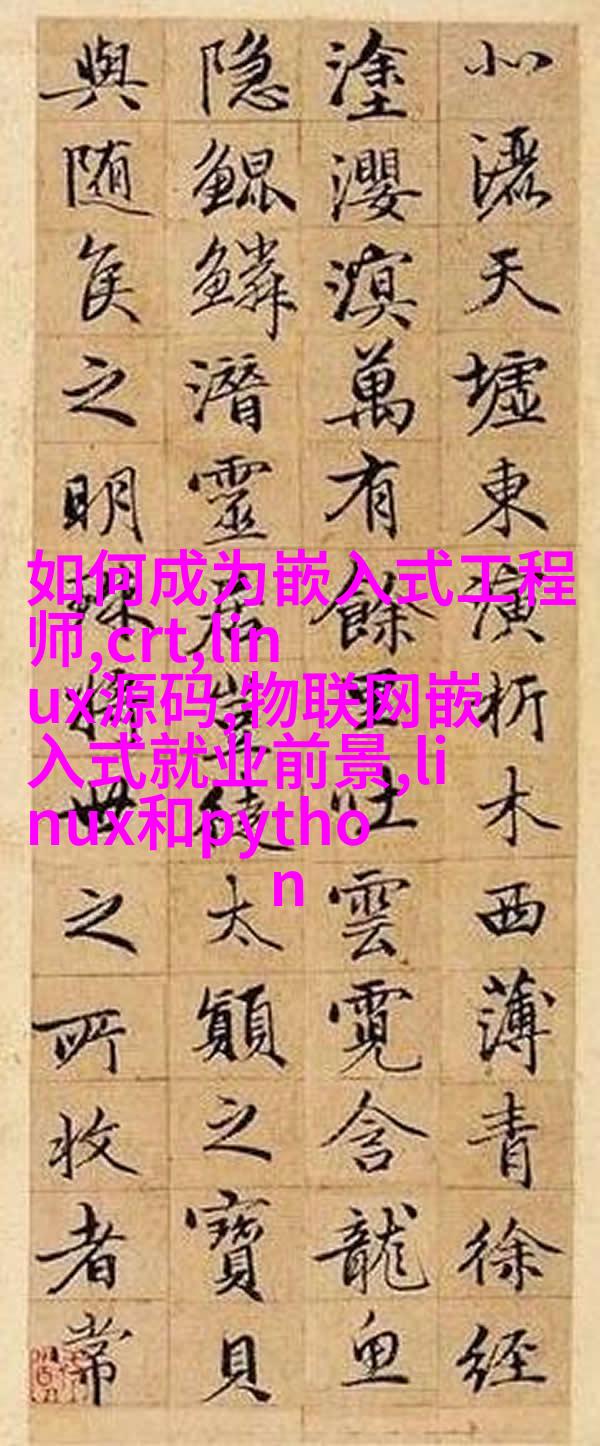 北灑天墟東演析木西薄青徐經
塗瀴溟萬有餘吐雲霓含龍魚
隐鯤鱗潛靈居豈徒太顛之寶貝
與随侯之明珠將世之所收者常
如何成为嵌入式工程
师,crt,lin
ux源码,物联网嵌
入式就业前景,li
nux和pytho
n